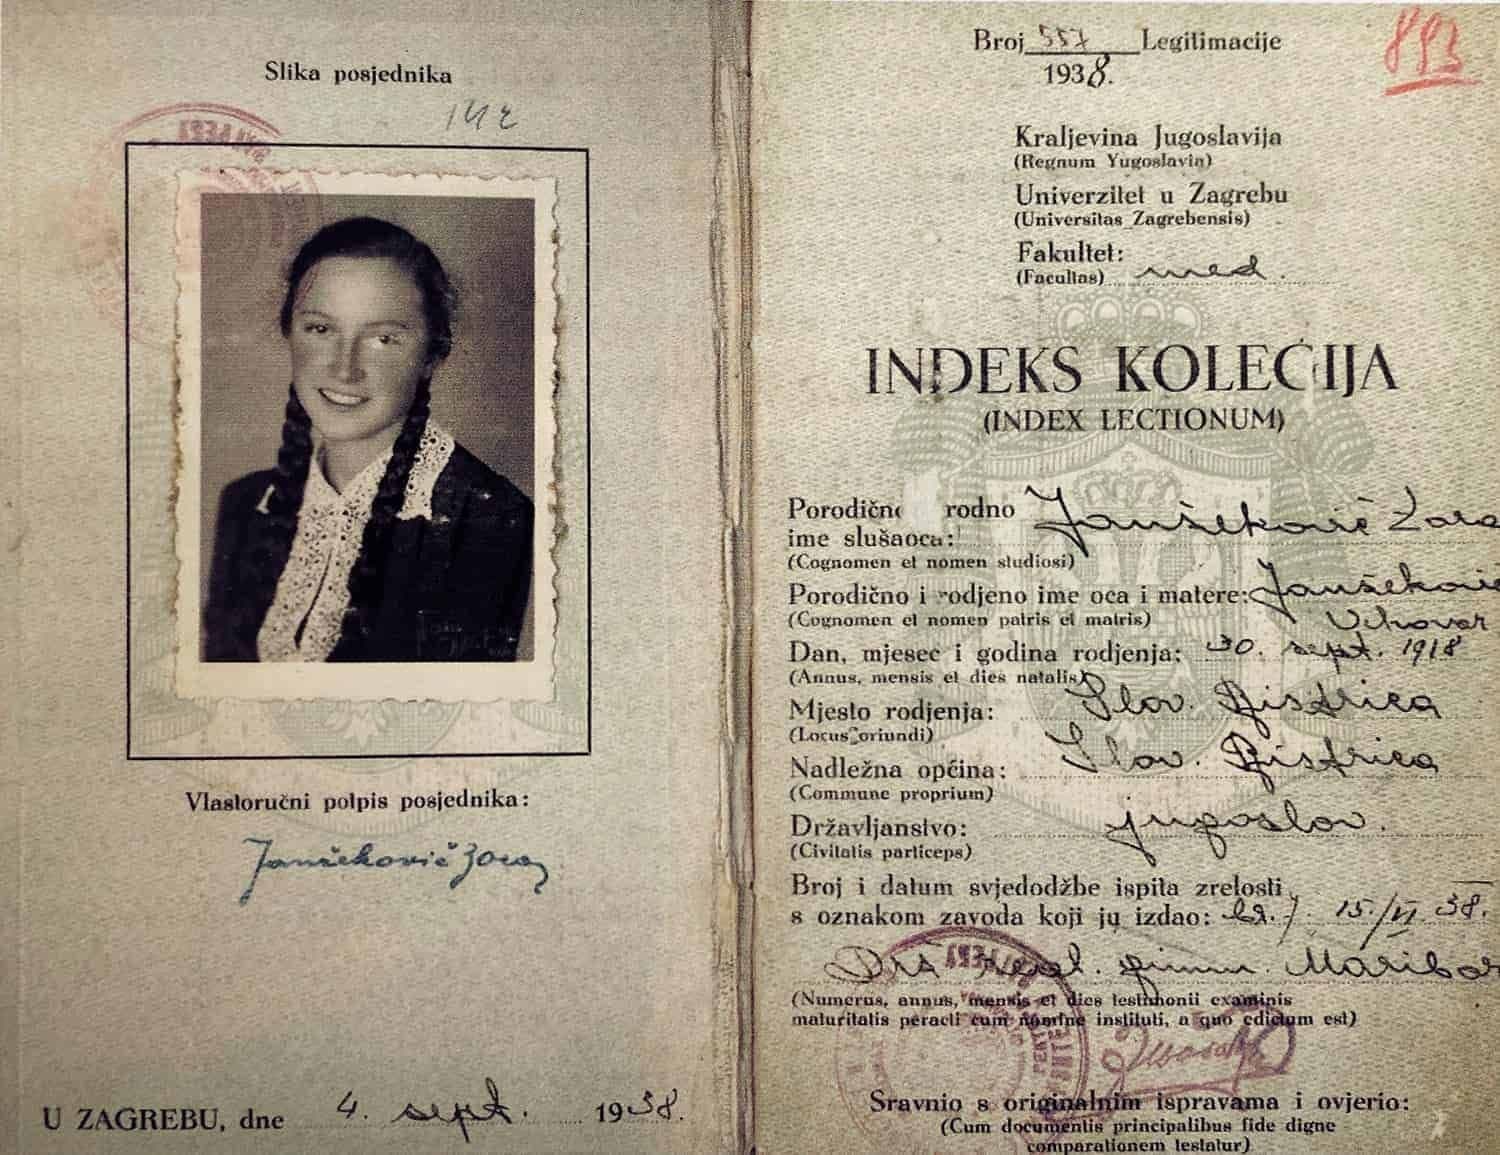 Slika posjednika
142
Vlastoručni potpis posjednika:
Janšekovič Zora
U ZAGREBU, dne 4. sept. 1938.
893
Broj 557 Legitimacije
1938.
Kraljevina Jugoslavija
(Regnum Yugoslavia)
Univerzitet u Zagrebu
(Universitas Zagrebensis)
Fakultet:
(Facultas) med.
INDEKS KOLEGIJA
(INDEX LECTIONUM)
Porodično rodno Janšekovič Zora
ime slušaoca:
(Cognomen et nomen studiosi)
Porodično i rodjeno ime oca i matere: Janšekovič
(Cognomen et nomen patris et matris) Vehovar
Dan, mjesec i godina rodjenja: 30. sept. 1918
(Annus, mensis et dies natalis)
Mjesto rodjenja: Slov. Bistrica
(Locus oriundi)
Nadležna općina: Slov. Bistrica
(Commune proprium)
Državljanstvo: jugoslov.
(Civitatis particeps)
Broj i datum svjedodžbe ispita zrelosti
s oznakom zavoda koji ju izdao: 15./VI 38.
real. gimn. Maribor
(Numerus, annus, mensis et dies testimonii examinis
maturitatis peracti cum nomine instituti, a quo edictum est)
Sravnio s originalnim ispravama i ovjerio:
(Cum documentis principalibus fide digne
comparationem testatur)